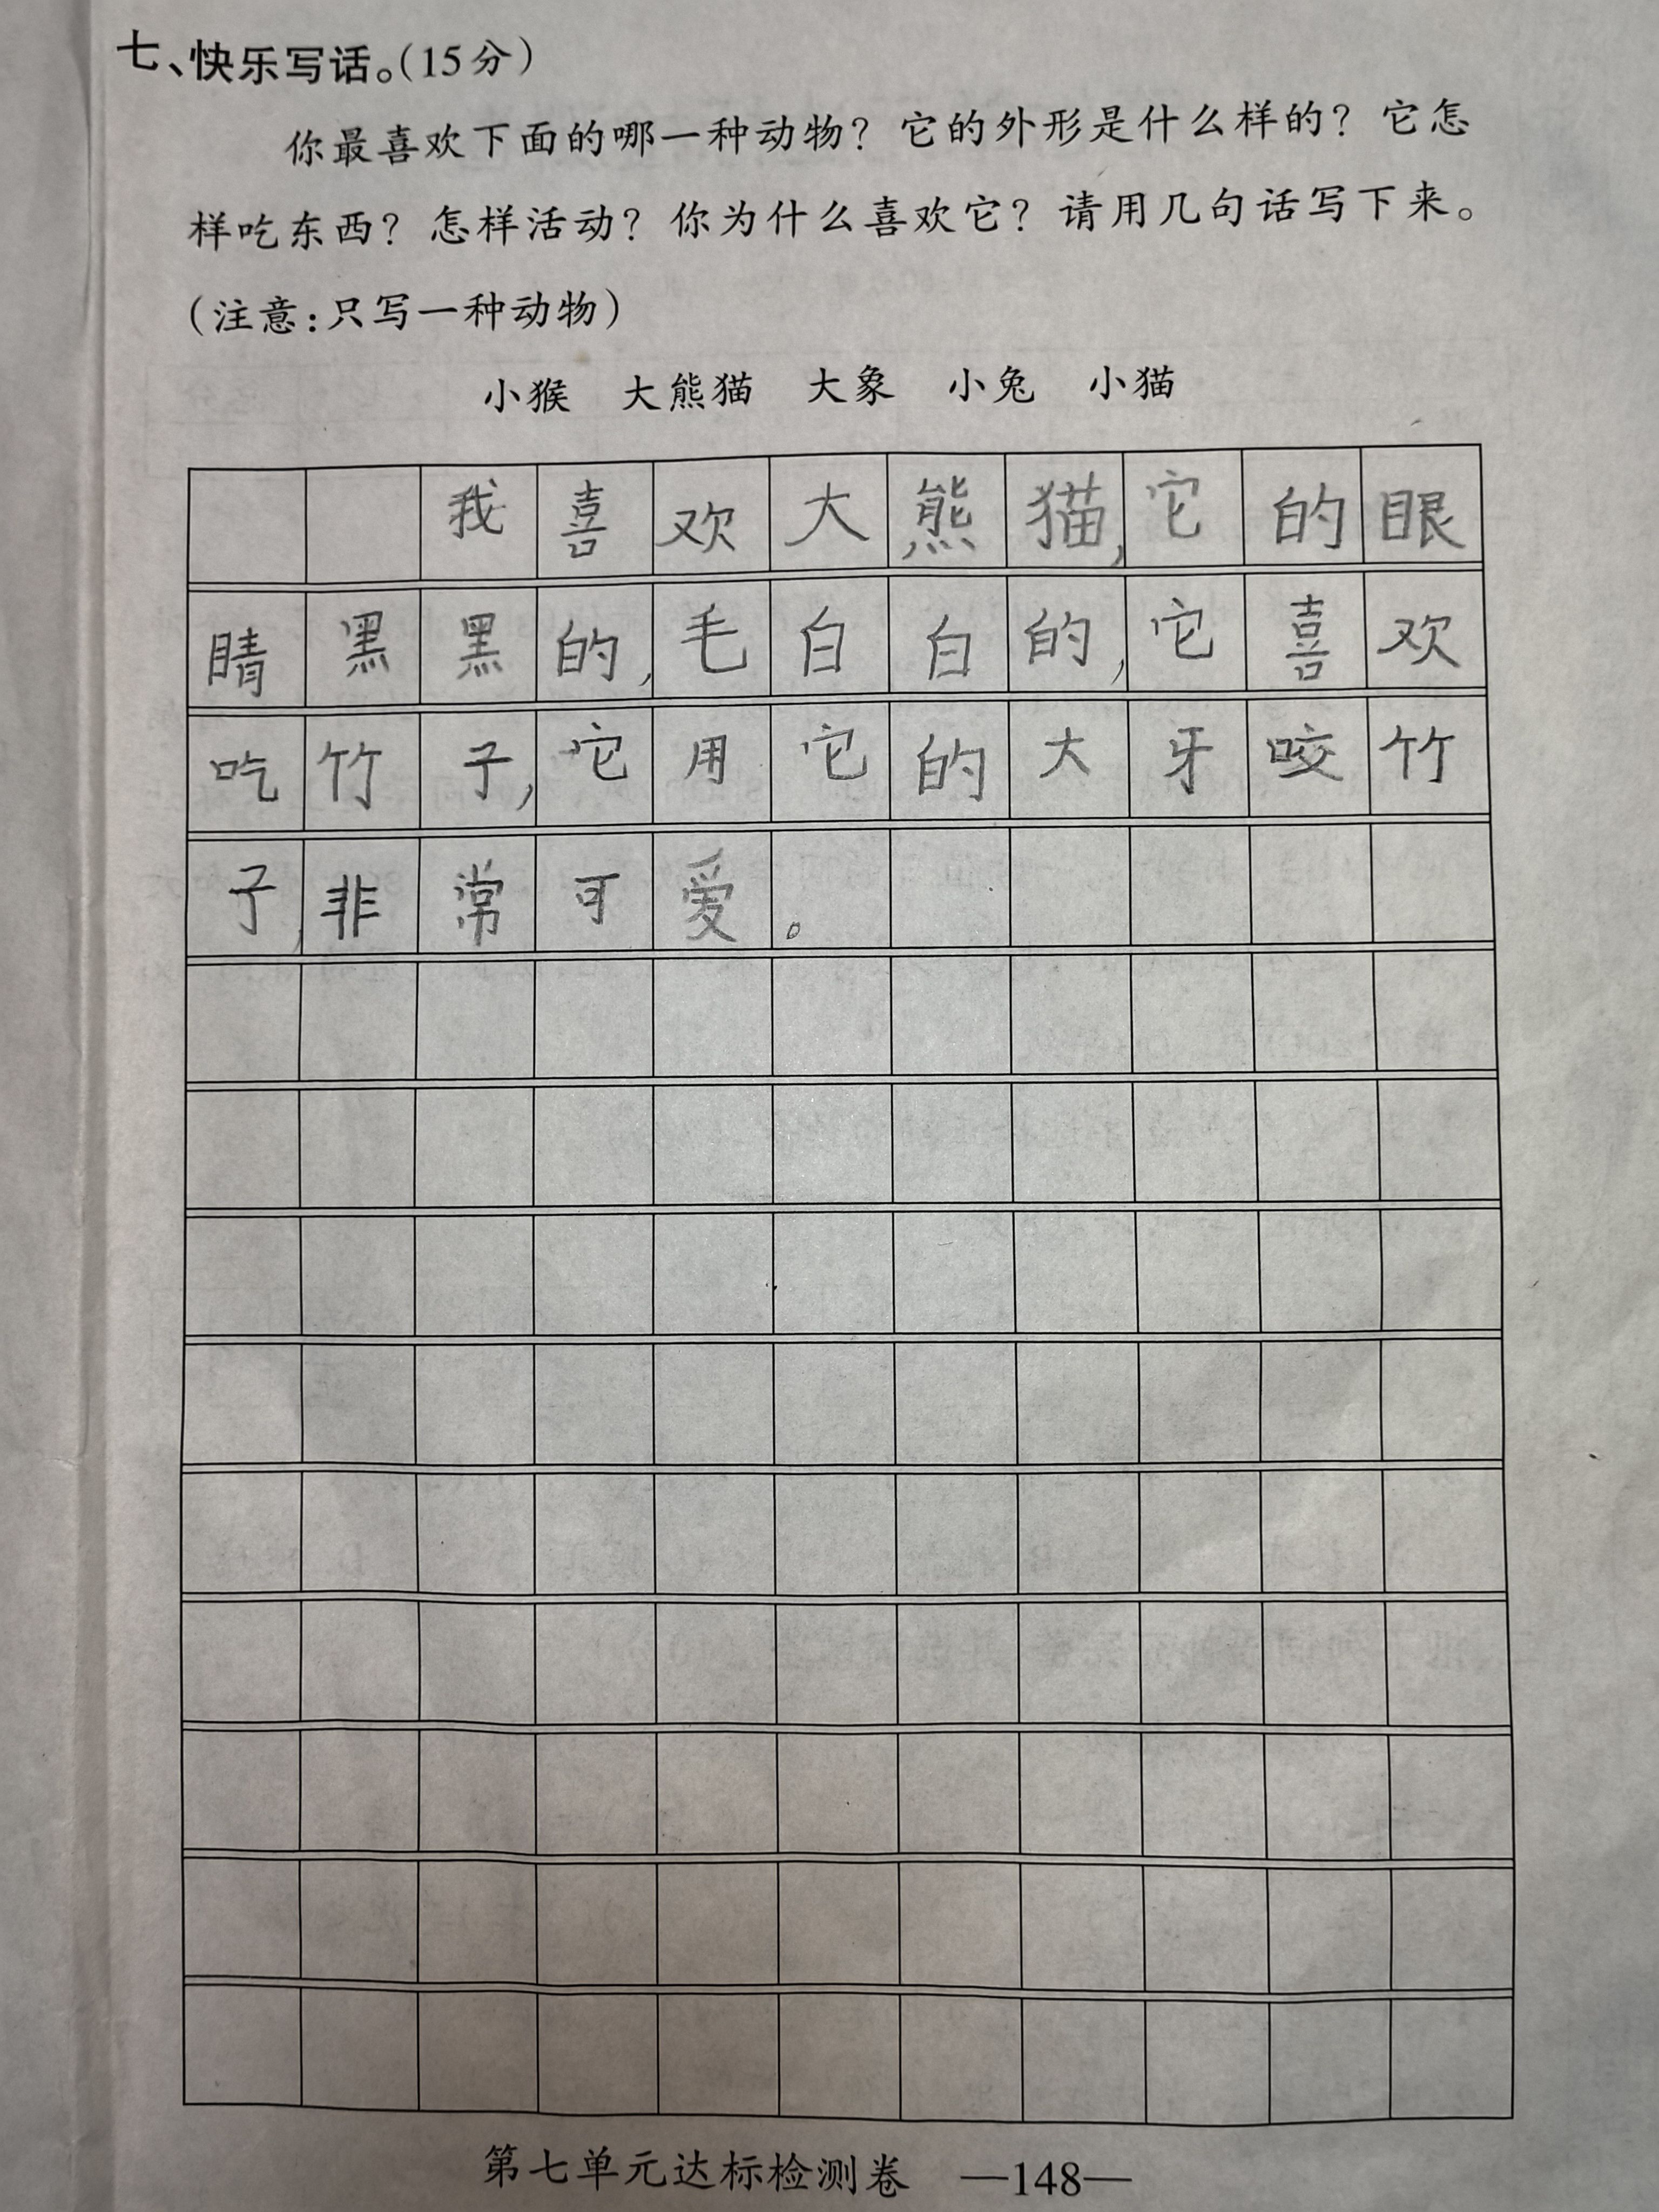 七、快乐写话。(15分)
你最喜欢下面的哪一种动物？它的外形是什么样的？它怎
样吃东西？怎样活动？你为什么喜欢它？请用几句话写下来。
(注意:只写一种动物)
小猴 大熊猫 大象 小兔 小猫
我喜欢大熊猫,它的眼
睛黑黑的,毛白白的,它喜欢
吃竹子,它用它的大牙咬竹
子,非常可爱。
第七单元达标检测卷 —148—